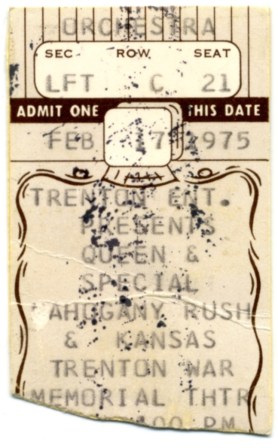 ORCHESTRA
SEC ROW SEAT
LFT C 21
ADMIT ONE THIS DATE
FEB 17 1975
TRENTON ENT.
PRESENTS
QUEEN &
SPECIAL
MAHOGANY RUSH
& KANSAS
TRENTON WAR
MEMORIAL THTR
00 PM